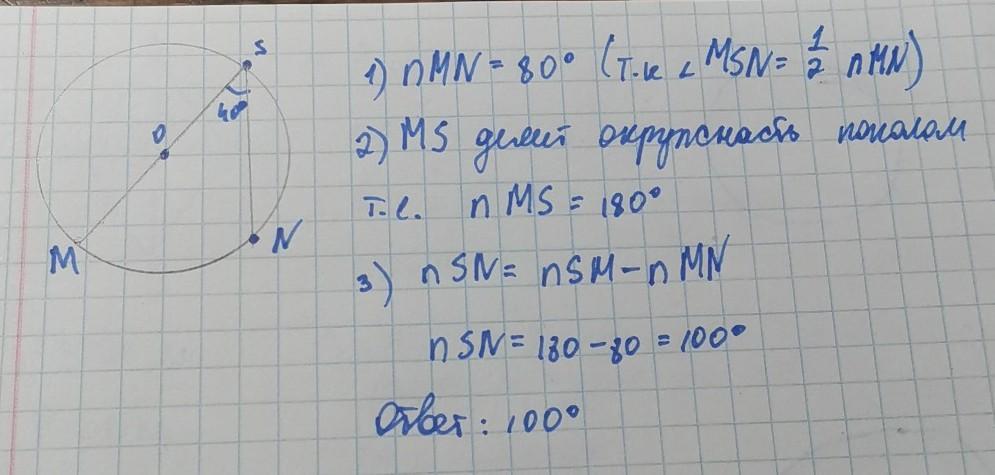 S
40°
O
M
N
1) ∩MN = 80° (т.к ∠MSN = 1/2 ∩MN)
2) MS делит окружность пополам
т.е. ∩MS = 180°
3) ∩SN = ∩SM - ∩MN
∩SN = 180 - 80 = 100°
Ответ: 100°